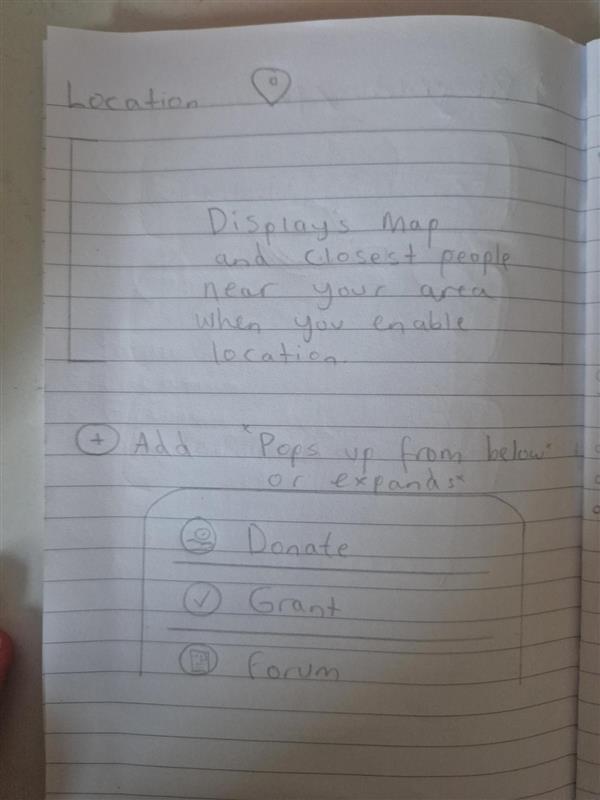 Location
Displays Map
and closest people
near your area
when you enable
location.
+ Add "Pops up from below"
or expands"
Donate
Grant
Forum